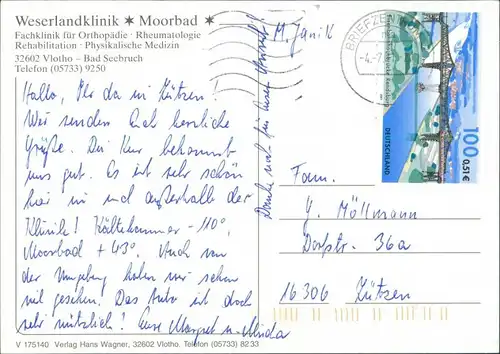 Weserlandklinik ✶ Moorbad ✶
Fachklinik für Orthopädie · Rheumatologie
Rehabilitation · Physikalische Medizin
32602 Vlotho – Bad Seebruch
Telefon (05733) 9250
Hallo, Ihr da in Zützen!
Wir senden Euch herzliche
Grüße. Die Kur bekommt
uns gut. Es ist sehr schön
hier in und außerhalb der
Klinik! Kältekammer -110°,
Moorbad +43°. Auch von
der Umgebung haben wir schon
viel gesehen. Das Auto ist doch
sehr nützlich! Eure Margret u.
V 175140 Verlag Hans Wagner, 32602 Vlotho. Telefon (05733) 82 33
Danke noch für
M. Janik
BRIEFZEN
DEUTSCHLAND
100
0,51€
Fam.
G. Möllmann
Dorfstr. 36a
16306 Zützen